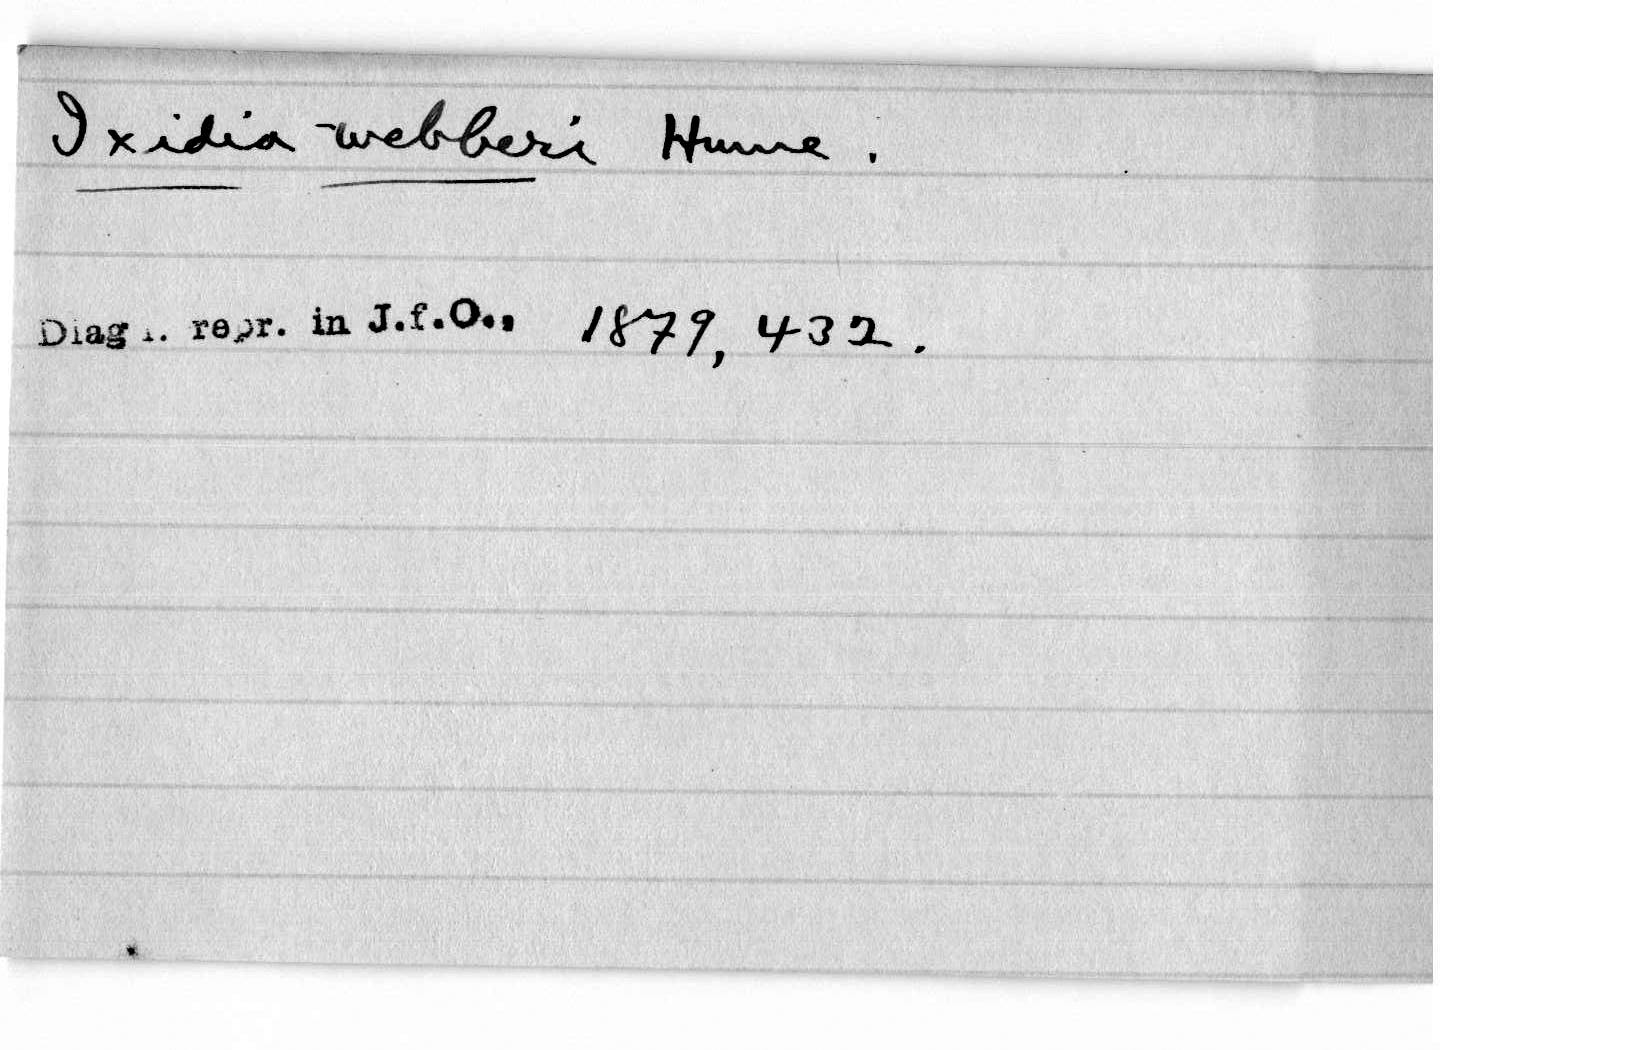 Ixidia webberi Hume.
Diagn. repr. in J.f.O., 1879, 432.